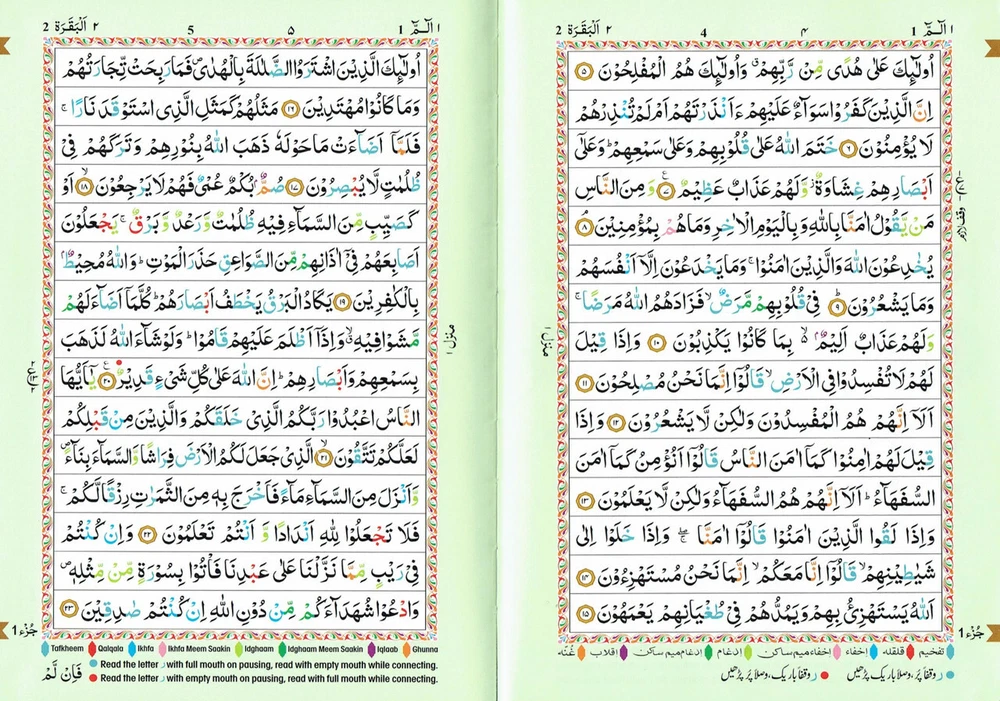 ١ الٓمّٓ 1
۴ 4
٢ اَلْبَقَرَة 2
اُولٰٓئِكَ عَلٰى هُدًى مِّنْ رَّبِّهِمْ ۗ وَاُولٰٓئِكَ هُمُ الْمُفْلِحُوْنَ ٥
اِنَّ الَّذِيْنَ كَفَرُوْا سَوَآءٌ عَلَيْهِمْ ءَاَنْذَرْتَهُمْ اَمْ لَمْ تُنْذِرْهُمْ
لَا يُؤْمِنُوْنَ ٦ خَتَمَ اللّٰهُ عَلٰى قُلُوْبِهِمْ وَعَلٰى سَمْعِهِمْ ؕ وَعَلٰٓى
اَبْصَارِهِمْ غِشَاوَةٌ ز وَّلَهُمْ عَذَابٌ عَظِيْمٌ ٧ وَمِنَ النَّاسِ
مَنْ يَّقُوْلُ اٰمَنَّا بِاللّٰهِ وَبِالْيَوْمِ الْاٰخِرِ وَمَا هُمْ بِمُؤْمِنِيْنَ ٨
يُخٰدِعُوْنَ اللّٰهَ وَالَّذِيْنَ اٰمَنُوْا ۚ وَمَا يَخْدَعُوْنَ اِلَّآ اَنْفُسَهُمْ
وَمَا يَشْعُرُوْنَ ٩ فِيْ قُلُوْبِهِمْ مَّرَضٌ ۙ فَزَادَهُمُ اللّٰهُ مَرَضًا ۚ
وَلَهُمْ عَذَابٌ اَلِيْمٌ ۢ ۙ بِمَا كَانُوْا يَكْذِبُوْنَ ١٠ وَاِذَا قِيْلَ
لَهُمْ لَا تُفْسِدُوْا فِى الْاَرْضِ ۙ قَالُوْٓا اِنَّمَا نَحْنُ مُصْلِحُوْنَ ١١
اَلَآ اِنَّهُمْ هُمُ الْمُفْسِدُوْنَ وَلٰكِنْ لَّا يَشْعُرُوْنَ ١٢ وَاِذَا
قِيْلَ لَهُمْ اٰمِنُوْا كَمَآ اٰمَنَ النَّاسُ قَالُوْٓا اَنُؤْمِنُ كَمَآ اٰمَنَ
السُّفَهَآءُ ؕ اَلَآ اِنَّهُمْ هُمُ السُّفَهَآءُ وَلٰكِنْ لَّا يَعْلَمُوْنَ ١٣
وَاِذَا لَقُوا الَّذِيْنَ اٰمَنُوْا قَالُوْٓا اٰمَنَّا ۖۚ وَاِذَا خَلَوْا اِلٰى
شَيٰطِيْنِهِمْ ۙ قَالُوْٓا اِنَّا مَعَكُمْ ۙ اِنَّمَا نَحْنُ مُسْتَهْزِءُوْنَ ١٤
اَللّٰهُ يَسْتَهْزِئُ بِهِمْ وَيَمُدُّهُمْ فِيْ طُغْيَانِهِمْ يَعْمَهُوْنَ ١٥
وقف لازم
منزل ١
جُزْء 1
تفخیم قلقلہ إخفاء إخفاء میم ساکن إدغام إدغام میم ساکن اقلاب غُنّہ
ر وقفاً پُر، وصلاً باریک پڑھیں ر وقفاً باریک، وصلاً پُر پڑھیں
١ الٓمّٓ 1
۵ 5
٢ اَلْبَقَرَة 2
اُولٰٓئِكَ الَّذِيْنَ اشْتَرَوُا الضَّلٰلَةَ بِالْهُدٰى ۪ فَمَا رَبِحَتْ تِّجَارَتُهُمْ
وَمَا كَانُوْا مُهْتَدِيْنَ ١٦ مَثَلُهُمْ كَمَثَلِ الَّذِى اسْتَوْقَدَ نَارًا ۚ
فَلَمَّآ اَضَآءَتْ مَا حَوْلَهٗ ذَهَبَ اللّٰهُ بِنُوْرِهِمْ وَتَرَكَهُمْ فِيْ
ظُلُمٰتٍ لَّا يُبْصِرُوْنَ ١٧ صُمٌّ ۢ بُكْمٌ عُمْيٌ فَهُمْ لَا يَرْجِعُوْنَ ۙ ١٨ اَوْ
كَصَيِّبٍ مِّنَ السَّمَآءِ فِيْهِ ظُلُمٰتٌ وَّرَعْدٌ وَّبَرْقٌ ۚ يَجْعَلُوْنَ
اَصَابِعَهُمْ فِيْٓ اٰذَانِهِمْ مِّنَ الصَّوَاعِقِ حَذَرَ الْمَوْتِ ؕ وَاللّٰهُ مُحِيْطٌ ۢ
بِالْكٰفِرِيْنَ ١٩ يَكَادُ الْبَرْقُ يَخْطَفُ اَبْصَارَهُمْ ؕ كُلَّمَآ اَضَآءَ لَهُمْ
مَّشَوْا فِيْهِ ۙ وَاِذَآ اَظْلَمَ عَلَيْهِمْ قَامُوْا ؕ وَلَوْ شَآءَ اللّٰهُ لَذَهَبَ
بِسَمْعِهِمْ وَاَبْصَارِهِمْ ؕ اِنَّ اللّٰهَ عَلٰى كُلِّ شَيْءٍ قَدِيْرٌ ٢٠ يٰٓاَيُّهَا
النَّاسُ اعْبُدُوْا رَبَّكُمُ الَّذِيْ خَلَقَكُمْ وَالَّذِيْنَ مِنْ قَبْلِكُمْ
لَعَلَّكُمْ تَتَّقُوْنَ ۙ ٢١ الَّذِيْ جَعَلَ لَكُمُ الْاَرْضَ فِرَاشًا وَّالسَّمَآءَ بِنَآءً ۪
وَّاَنْزَلَ مِنَ السَّمَآءِ مَآءً فَاَخْرَجَ بِهٖ مِنَ الثَّمَرٰتِ رِزْقًا لَّكُمْ ۚ
فَلَا تَجْعَلُوْا لِلّٰهِ اَنْدَادًا وَّاَنْتُمْ تَعْلَمُوْنَ ٢٢ وَاِنْ كُنْتُمْ
فِيْ رَيْبٍ مِّمَّا نَزَّلْنَا عَلٰى عَبْدِنَا فَاْتُوْا بِسُوْرَةٍ مِّنْ مِّثْلِهٖ ۪
وَادْعُوْا شُهَدَآءَكُمْ مِّنْ دُوْنِ اللّٰهِ اِنْ كُنْتُمْ صٰدِقِيْنَ ٢٣
منزل ١
جُزْء 1
Tafkheem Qalqala Ikhfa Ikhfa Meem Saakin Idghaam Idghaam Meem Saakin Iqlaab Ghunna
Read the letter ر with full mouth on pausing, read with empty mouth while connecting.
Read the letter ر with empty mouth on pausing, read with full mouth while connecting.
فَاِنْ لَّمْ